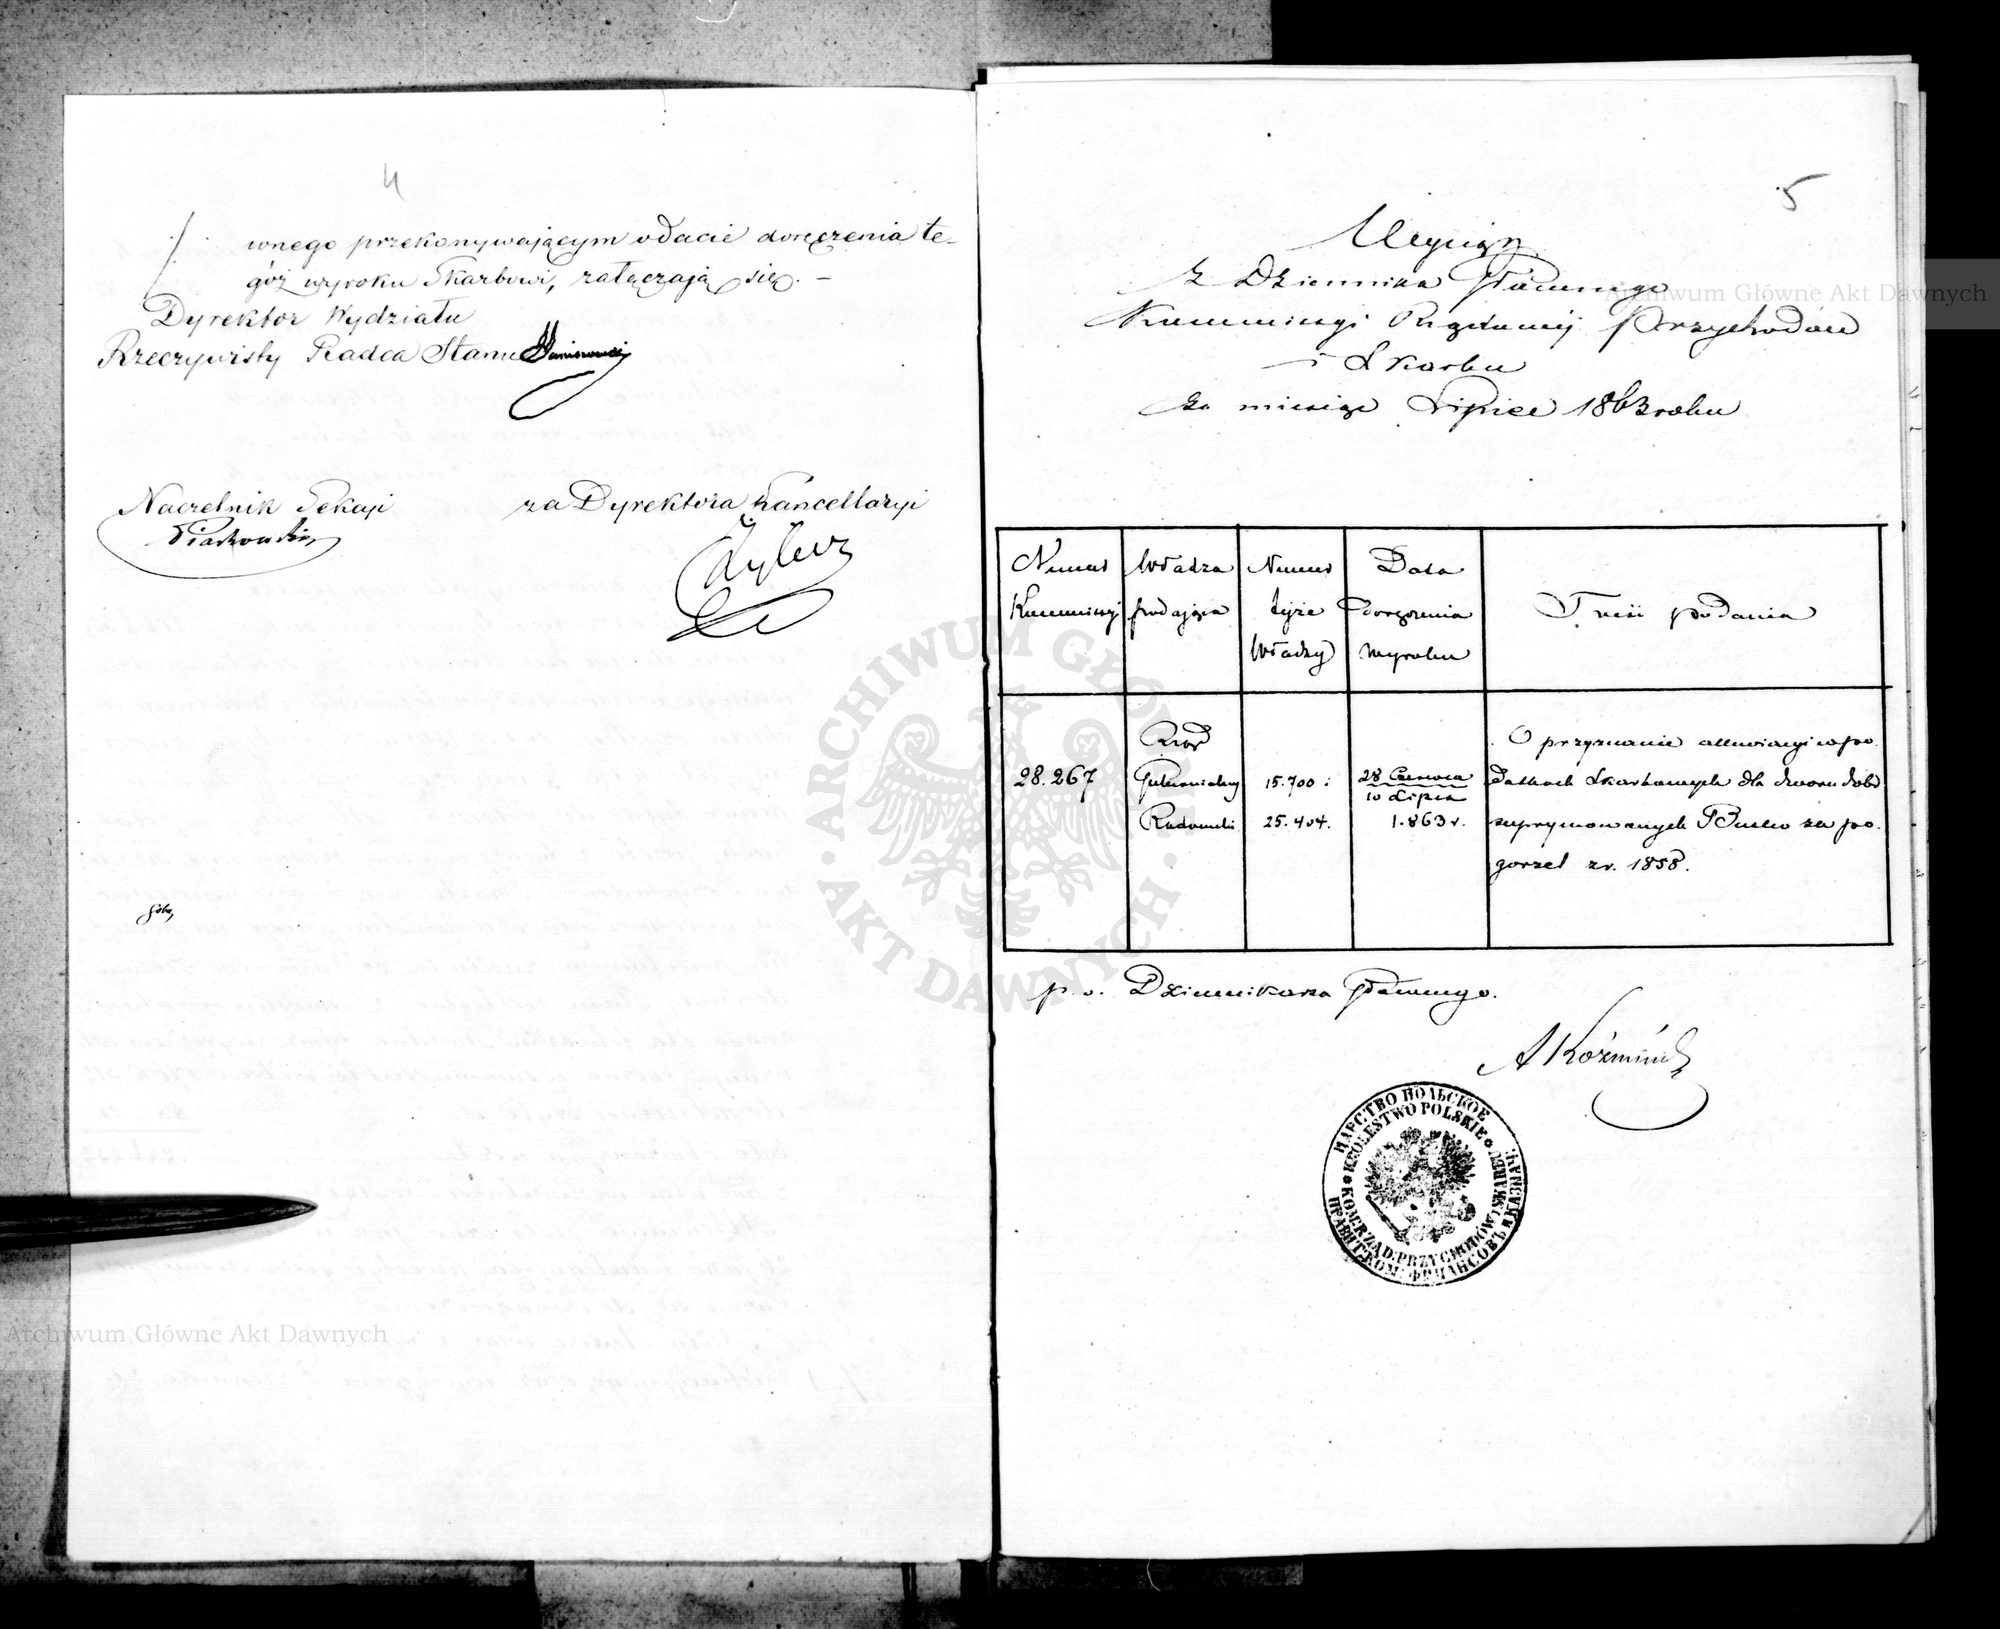 4
wnego przekonywającym o dacie doręczenia te-
goż wyroku Skarbowi, załączają się. –
Dyrektor Wydziału
Rzeczywisty Radca Stanu
Naczelnik Sekcji
Piaskowski
za Dyrektora Kancellaryi
5
Wyciąg
z Dziennika Głównego
Kommissyi Rządowej Przychodów
i Skarbu
za miesiąc Lipiec 1863 roku
Numer Kommissyi
Władza podająca
Numer tejże Władzy
Data doręczenia wyroku
Treść podania
28.267
Rząd Gubernialny Radomski
15.700 :
25.404.
28 Czerwca
10 Lipca
1.863 r.
O przyznanie allewiacyi w po-
datkach Skarbowych dla dworu dóbr
supprymowanych Busko za po-
gorzel z r. 1858.
p. o. Dziennikarza Głównego.
A Koźmiński
ЦАРСТВО ПОЛЬСКОЕ
KRÓLESTWO POLSKIE
KOM: RZĄD: PRZYCHODÓW I SKARBU
ПРАВИТ: КОМ: ФИНАНСОВЪ И КАЗНАЧ:
ARCHIWUM GŁÓWNE
AKT DAWNYCH
Archiwum Główne Akt Dawnych
Archiwum Główne Akt Dawnych